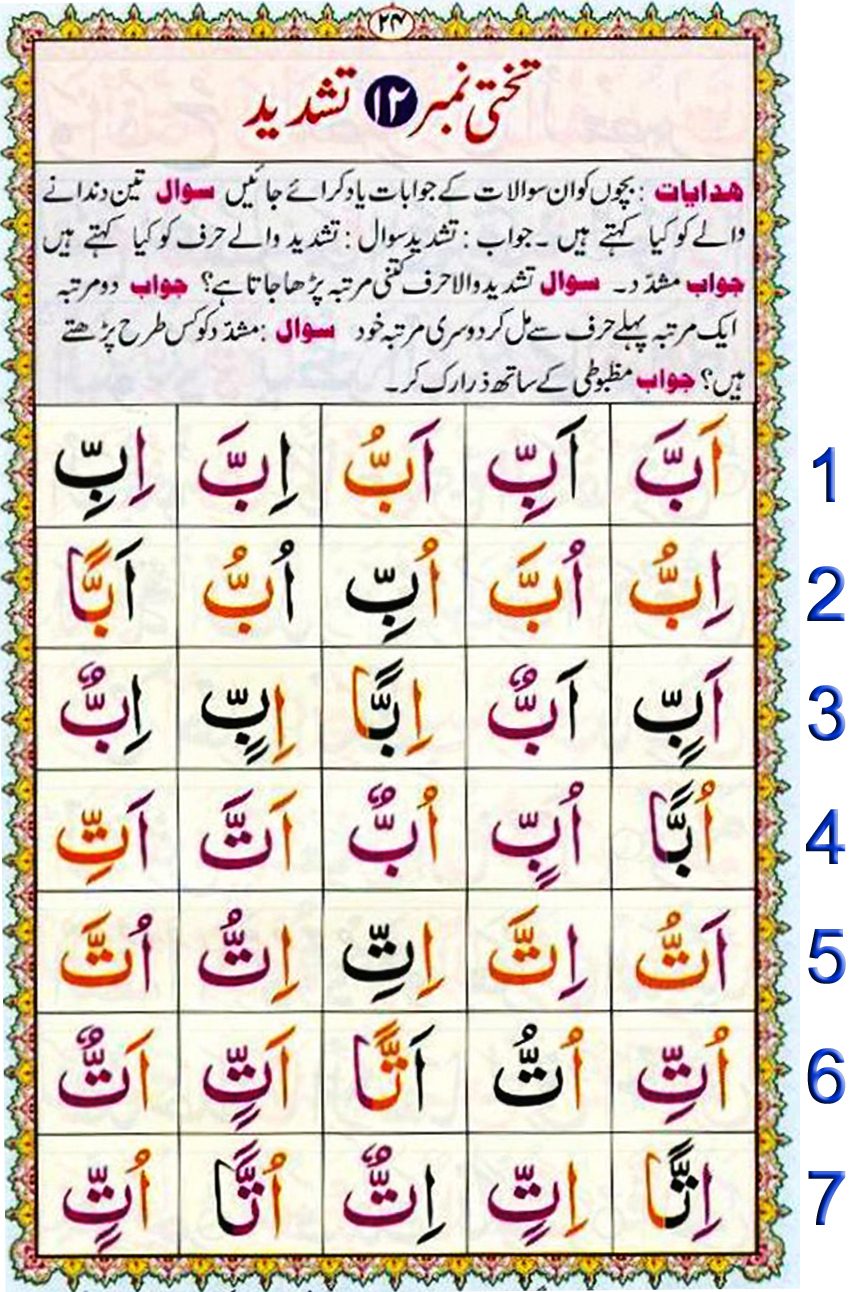 ۲۴
تختی نمبر ۱۲ تشدید
ھدایات : بچوں کو ان سوالات کے جوابات یاد کرائے جائیں سوال تین دندانے
والے کو کیا کہتے ہیں ۔ جواب : تشدید سوال : تشدید والے حرف کو کیا کہتے ہیں
جواب مشدّد ۔ سوال تشدید والا حرف کتنی مرتبہ پڑھا جاتا ہے؟ جواب دو مرتبہ
ایک مرتبہ پہلے حرف سے مل کر دوسری مرتبہ خود سوال : مشدّد کو کس طرح پڑھتے
ہیں؟ جواب مظبوطی کے ساتھ ذرا رک کر ۔
اَبَّ اَبِّ اَبُّ اِبَّ اِبِّ 1
اِبُّ اُبَّ اُبِّ اُبُّ اَبًّا 2
اَبٍّ اَبٌّ اِبًّا اِبٍّ اِبٌّ 3
اُبًّا اُبٍّ اُبٌّ اَتَّ اَتِّ 4
اَتُّ اِتَّ اِتِّ اِتُّ اُتَّ 5
اُتِّ اُتُّ اَتًّا اَتٍّ اَتٌّ 6
اِتًّا اِتٍّ اِتٌّ اُتًّا اُتٍّ 7